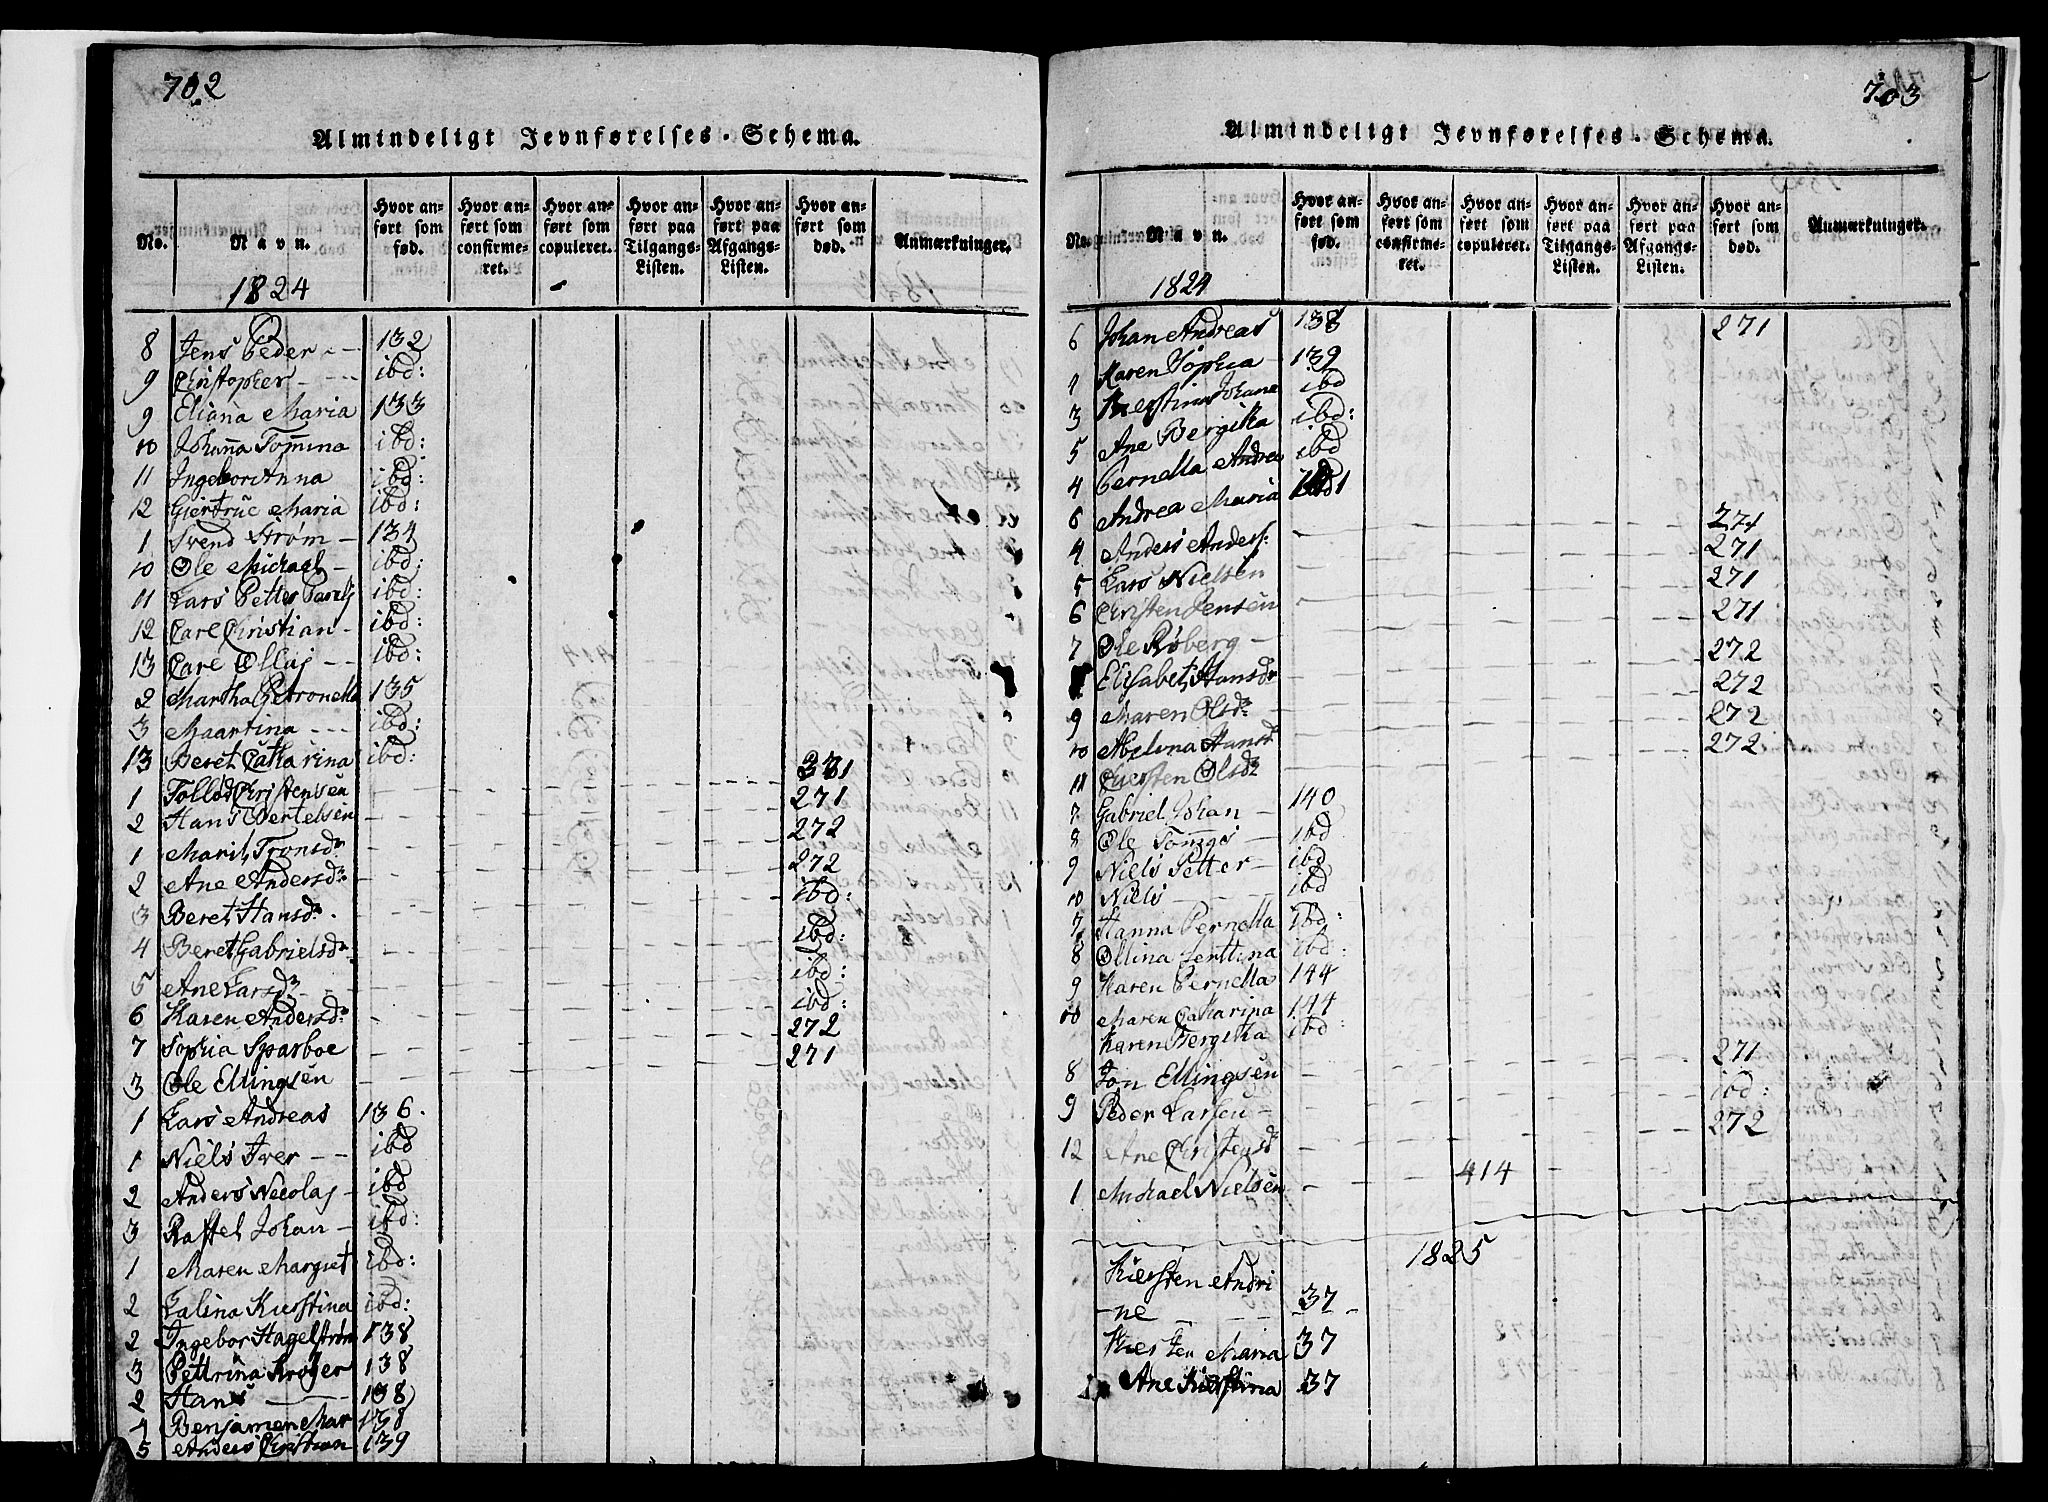 702
Almindeligt Jevnførelses-Schema.
No. Navn. Hvor anført som fød. Hvor anført som confirmeret. Hvor anført som copuleret. Hvor anført paa Tilgangs-Listen. Hvor anført paa Afgangs-Listen. Hvor anført som død. Anmærkninger.
1824
8 Jens Peder - - 132
9 Christopher - - - ibd:
9 Eliana Maria 133
10 Johanna Tomina ibd:
11 Ingebor Anna ibd:
12 Giertrue Maria ibd:
1 Svend Strøm - 134
10 Ole Michael - ibd:
11 Lars Petter ibd:
12 Carl Christian - ibd:
13 Carl Ollaj - - ibd:
2 Martha Petronella 135
3 Maartina - - - ibd:
13 Beret Catharina ibd:
1 Christensen 271
2 Hans Bertelsen 271
1 Marit Tronsdr 272
2 Ane Andersdr 272
3 Beret Hansdr ibd:
4 Beret Gabrielsdr ibd:
5 Ane Larsdr ibd:
6 Karen Andersdr ibd:
7 Sophia Sparboe 272
3 Ole Ellingsen 271
1 Lars Andreas 136.
1 Niels Iver - - ibd
2 Anders Nicolaj - ibd
3 Johan - ibd:
1 Maren Margret ibd:
2 Kierstina ibd:
2 Ingebor Hagelstrøm 138
3 Pettrina Krøyer 138
2 Hans 138
4 Benjamen Mar 138
5 Anders Christian 139
703
Almindeligt Jevnførelses-Schema.
No. Navn. Hvor anført som fød. Hvor anført som confirmeret. Hvor anført som copuleret. Hvor anført paa Tilgangs-Listen. Hvor anført paa Afgangs-Listen. Hvor anført som død. Anmærkninger.
1824
6 Johan Andreas 138
Karen Sophia 139
3 Kierstina Johane ibd
5 Ane Bergitta ibd:
4 Pernella Andrea ibd
6 Andrea Maria
4 Anders Anders: 271
5 Lars Nielsen 271
6 Christen Jensen 271
7 Ole Røberg - 271
Elisabet Hansdr 272
9 Maren Olsdr 272
10 Hansd 272
11 Kiersten Olsdr 272
7 Gabriel Johan - 140
8 Ole ibd
9 Niels Petter - ibd
10 Niels ibd
7 Hanna Pernella ibd:
8 Ollina ibd:
9 Karen Pernella 144
10 Maren Catharina 144
Karen Bergitha ibd
8 Jon Ellingsen 271
9 Peder Larsen - ibd:
12 Ane Christensd 272
1 Michael Nielsen 414
1825
Kiersten Andri
-ne 37
Kiersten Maria 37
Ane Kierstina 37